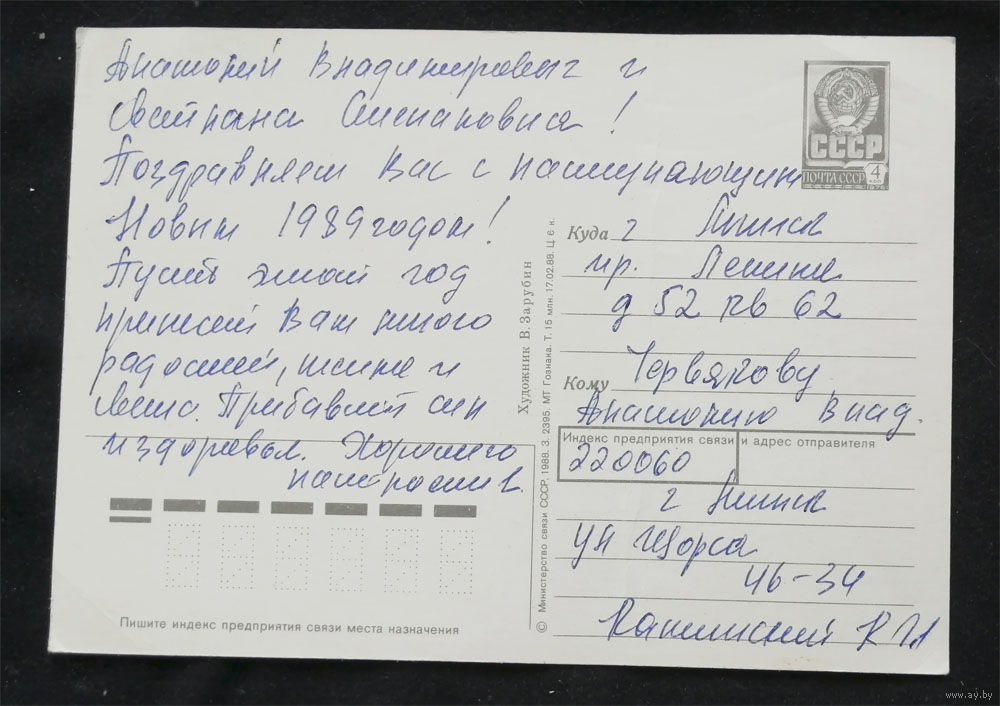 Анатолий Владимирович и
Светлана Степановна!
Поздравляем Вас с наступающим
Новым 1989 годом!
Пусть этот год
принесет Вам много
радостей, и
Прибавит сил
и здоровья. Хорошего
настроения.
СССР
ПОЧТА СССР 4
Куда г Минск
пр. Ленина
д 52 кв 62
Кому Червякову
Анатолию Влад.
Индекс предприятия связи и адрес отправителя
220060
г Минск
ул Щорса
46-34
Художник В. Зарубин
© Министерство связи СССР, 1988. З. 2395. МТ Гознака. Т. 15 млн. 17.02.88. Ц. 6 к.
Пишите индекс предприятия связи места назначения
www.ay.by